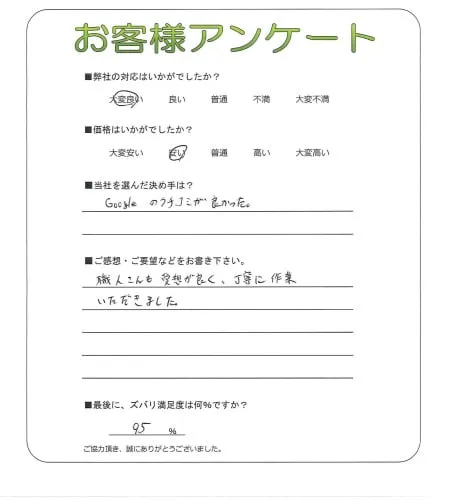 お客様アンケート
■弊社の対応はいかがでしたか？
大変良い 良い 普通 不満 大変不満
■価格はいかがでしたか？
大変安い 安い 普通 高い 大変高い
■当社を選んだ決め手は？
Google のクチコミが良かった。
■ご感想・ご要望などをお書き下さい。
職人さんも愛想が良く、丁寧に作業
いただきました。
■最後に、ズバリ満足度は何%ですか？
95 %
ご協力頂き、誠にありがとうございました。